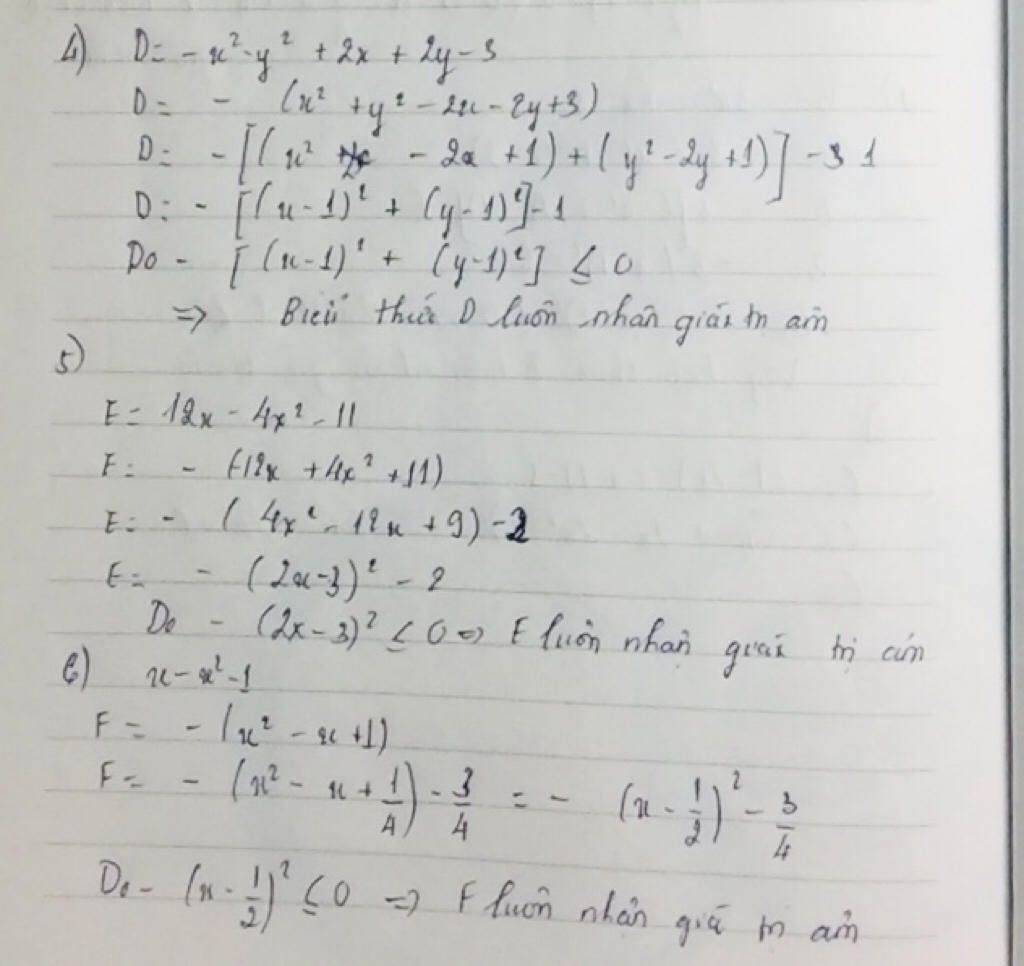 4) D = - x² - y² + 2x + 2y - 3
D = - (x² + y² - 2x - 2y + 3)
D = - [(x² - 2x + 1) + (y² - 2y + 1)] - 1
D = - [(x - 1)² + (y - 1)²] - 1
Do - [(x - 1)² + (y - 1)²] ≤ 0
=> Biểu thức D luôn nhận giá trị âm
5)
E = 12x - 4x² - 11
E = - (-12x + 4x² + 11)
E = - (4x² - 12x + 9) - 2
E = - (2x - 3)² - 2
Do - (2x - 3)² ≤ 0 => E luôn nhận giá trị âm
6) x - x² - 1
F = - (x² - x + 1)
F = - (x² - x + 1/4) - 3/4 = - (x - 1/2)² - 3/4
Do - (x - 1/2)² ≤ 0 => F luôn nhận giá trị âm